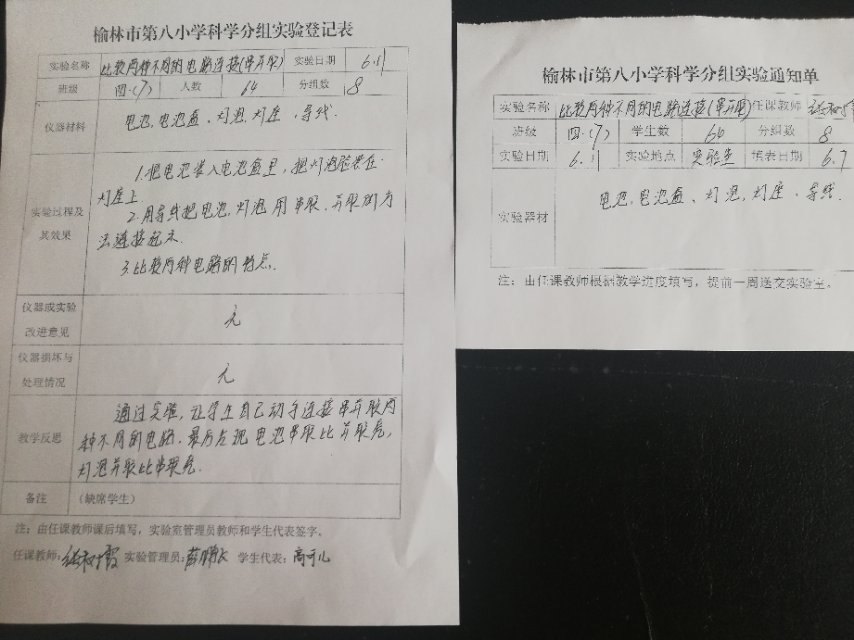 榆林市第八小学科学分组实验登记表
实验名称 比较两种不同的电路连接(串并联) 实验日期 6.11
班级 四(7) 人数 64 分组数 8
仪器材料 电池,电池盒、灯泡,灯座、导线.
实验过程及其效果
1.把电池装入电池盒里,把灯泡安装在
灯座上
2.用导线把电池,灯泡用串联、并联的方
法连接起来.
3.比较两种电路的特点.
仪器或实验改进意见 无
仪器损坏与处理情况 无
教学反思
通过实验,让学生自己动手连接串并联两
种不同的电路.最后发现电池串联比并联亮,
灯泡并联比串联亮.
备注 (缺席学生)
注:由任课教师课后填写,实验室管理员教师和学生代表签字。
任课教师: 实验管理员: 学生代表:高可儿
榆林市第八小学科学分组实验通知单
实验名称 比较两种不同的电路连接(串并联) 任课教师
班级 四(7) 学生数 64 分组数 8
实验日期 6.11 实验地点 实验室 填表日期 6.7
实验器材 电池,电池盒、灯泡,灯座、导线.
注:由任课教师根据教学进度填写,提前一周送交实验室。